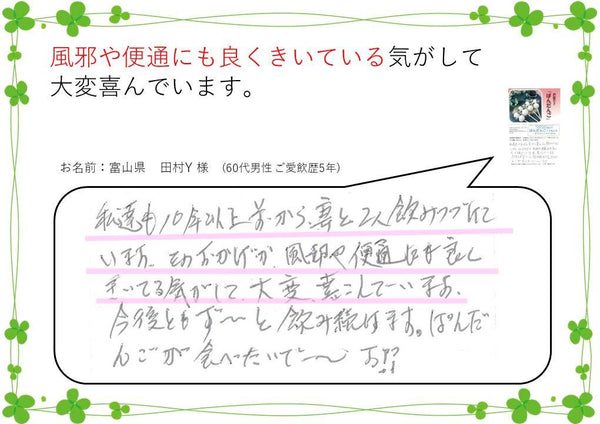 風邪や便通にも良くきいている気がして
大変喜んでいます。
お名前：富山県　田村Y 様　（60代男性 ご愛飲歴5年）
私達も10年以上前から、妻と2人飲みつづけて
います。そのおかげか、風邪や便通にも良く
きいてる気がして、大変、喜こんでいます。
今後ともず〜〜と飲み続けます。ぽんだ
んごが食べたいで〜〜す!!
ぽんだんご